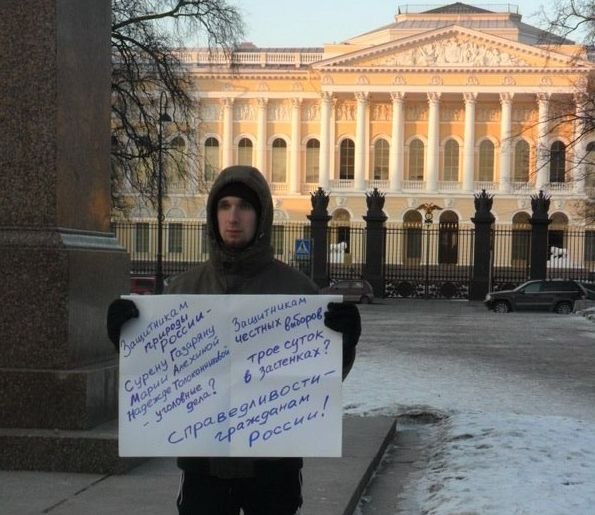 Защитникам
природы
России -
Сурену Газаряну
Марии Алехиной
Надежде Толоконниковой
- уголовные
дела?
Защитникам
честных выборов
трое суток
в застенках?
Справедливости -
гражданам
России!